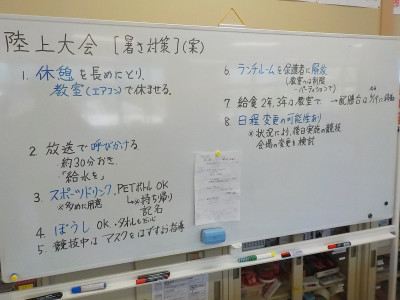 陸上大会 [暑さ対策](案)
1. 休憩を長めにとり、
教室(エアコン)で休ませる。
2. 放送で呼びかける
約30分おき
「給水を」
3. スポーツドリンク、PETボトル OK
※多めに用意
↳※持ち帰り
記名
4. ぼうし OK ・タオルも
5. 競技中はマスクをはずすよう指導
6. ランチルームを保護者に解放
(教室の
パーティションで)
7. 給食 2年、3年は教室で → 配膳台は
8. 日程変更の可能性あり
※状況により、後日実施の競技
会場の変更も検討